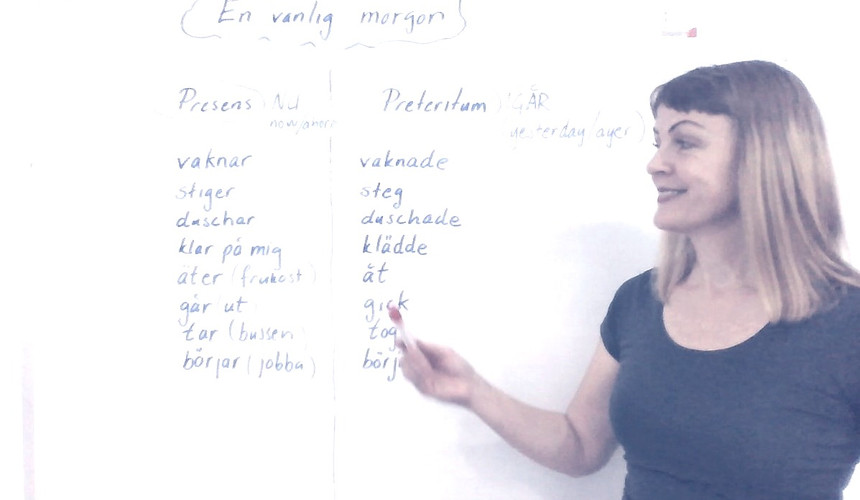 En vanlig morgon
Presens NU Preteritum IGÅR
now/ahora yesterday/ayer
vaknar vaknade
stiger steg
duschar duschade
klär på mig klädde
äter (frukost) åt
går ut gick
tar (bussen) tog
börjar (jobba) börj